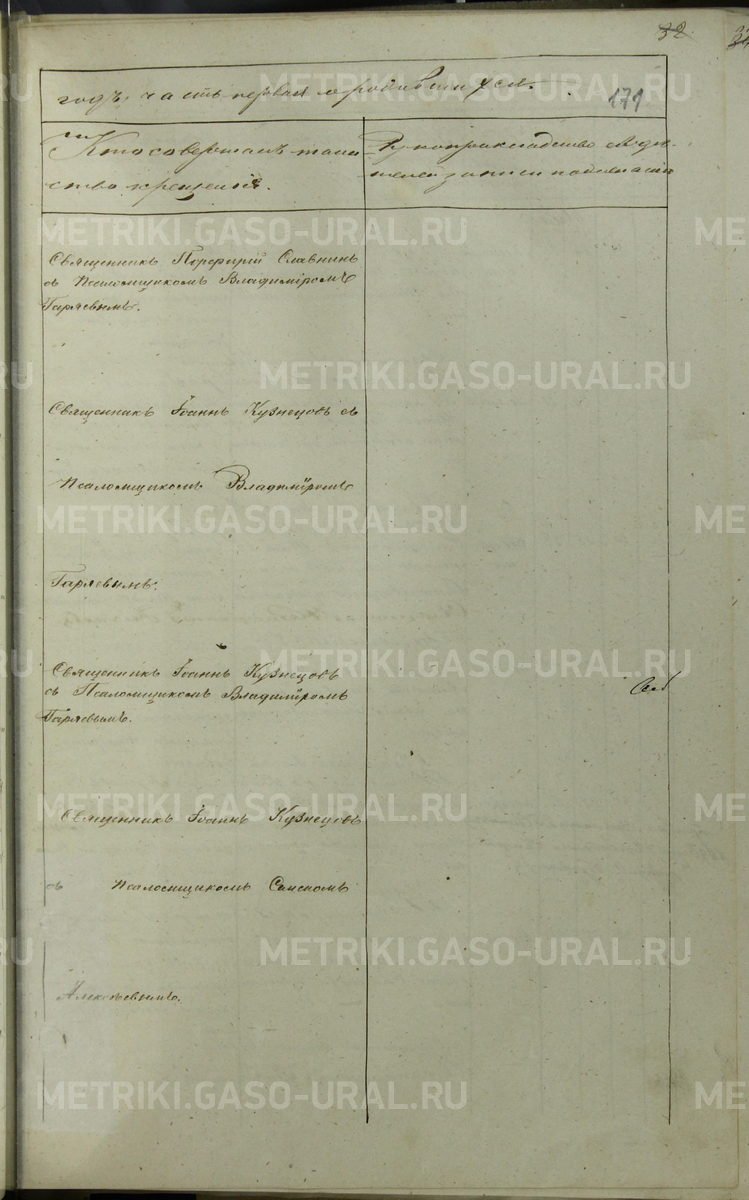 32.
годъ, часть первая о родившихся.
171
Кто совершалъ таин-
ство крещенія.
Рукоприкладство свидѣ-
телей записи по желанію
Священникъ Порфирій Славнинъ
съ Псаломщикомъ Владиміромъ
Гаряевымъ.
Священникъ Іоаннъ Кузнецовъ съ
Псаломщикомъ Владиміромъ
Гаряевымъ.
Священникъ Іоаннъ Кузнецовъ
съ Псаломщикомъ Владиміромъ
Гаряевымъ.
Священникъ Іоаннъ Кузнецовъ
съ Псаломщикомъ
Алексѣевымъ.
METRIKI.GASO-URAL.RU